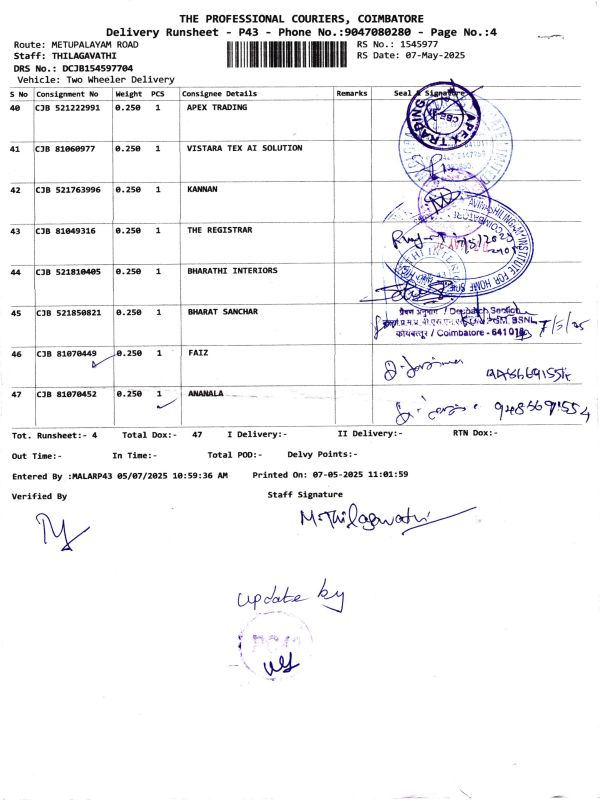 THE PROFESSIONAL COURIERS, COIMBATORE
Delivery Runsheet - P43 - Phone No.:9047080280 - Page No.:4
Route: METUPALAYAM ROAD RS No.: 1545977
Staff: THILAGAVATHI RS Date: 07-May-2025
DRS No.: DCJB154597704
Vehicle: Two Wheeler Delivery
S No Consignment No Weight PCS Consignee Details Remarks Seal & Signature
40 CJB 521222991 0.250 1 APEX TRADING
APEX TRADING
41 CJB 81060977 0.250 1 VISTARA TEX AI SOLUTION
42 CJB 521763996 0.250 1 KANNAN
43 CJB 81049316 0.250 1 THE REGISTRAR
INSTITUTE FOR HOME
44 CJB 521810405 0.250 1 BHARATHI INTERIORS
45 CJB 521850821 0.250 1 BHARAT SANCHAR
प्रेषण अनुभाग / Despatch Section
BSNL
कोयम्बत्तूर / Coimbatore - 641 018
7/5/25
46 CJB 81070449 0.250 1 FAIZ
47 CJB 81070452 0.250 1 ANANALA
Tot. Runsheet:- 4 Total Dox:- 47 I Delivery:- II Delivery:- RTN Dox:-
Out Time:- In Time:- Total POD:- Delvy Points:-
Entered By :MALARP43 05/07/2025 10:59:36 AM Printed On: 07-05-2025 11:01:59
Verified By Staff Signature
M. Thilagavathi
update by
PC43